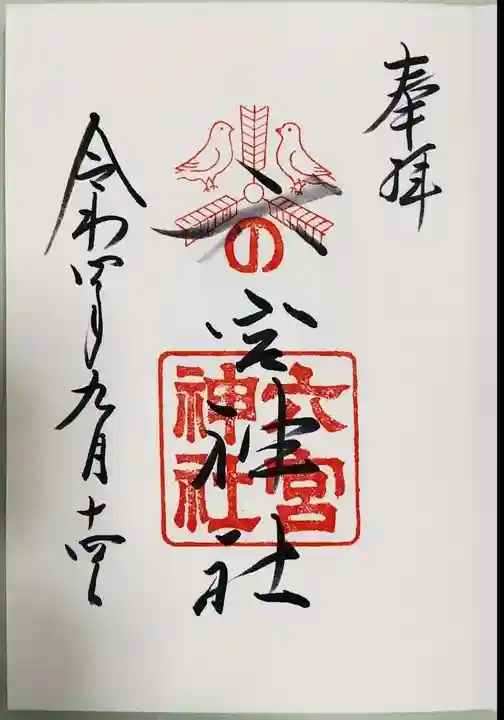 奉拝
六の宮神社
六宮
神社
令和四年九月十四日